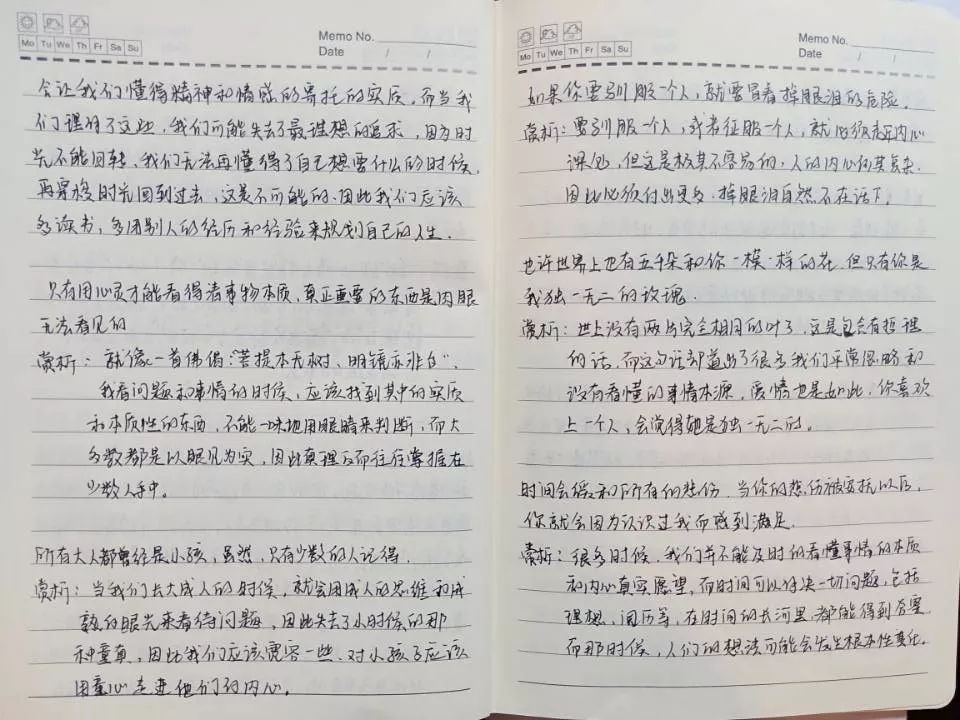 Mo Tu We Th Fr Sa Su
Memo No.
Date / /
会让我们懂得精神和情感的寄托的实质，而当我
们理解了这些，我们可能失去了最理想的追求，因为时
光不能回转，我们无法再懂得了自己想要什么的时候，
再穿梭时光回到过去，这是不可能的。因此我们应该
多读书，多用别人的经历和经验来规划自己的人生。
只有用心灵才能看得清事物本质，真正重要的东西是肉眼
无法看见的
赏析：就像一首佛偈："菩提本无树，明镜亦非台"。
我看问题和事情的时候，应该找到其中的实质
和本质性的东西，不能一味地用眼睛来判断，而大
多数都是以眼见为实，因此真理反而往往掌握在
少数人手中。
所有大人都曾经是小孩，虽然，只有少数的人记得。
赏析：当我们长大成人的时候，就会用成人的思维和成
熟的眼光来看待问题，因此失去了小时候的那
种童真，因此我们应该宽容一些，对小孩子应该
用童心走进他们的内心。
Mo Tu We Th Fr Sa Su
Memo No.
Date / /
如果你要驯服一个人，就要冒着掉眼泪的危险。
赏析：要驯服一个人，或者征服一个人，就必须走内心
，但这是极其不容易的，人的内心何其复杂，
因此必须付出更多，掉眼泪自然不在话下。
也许世界上也有五千朵和你一模一样的花，但只有你是
我独一无二的玫瑰。
赏析：世上没有两片完全相同的叶子，这是包含有哲理
的话，而这句话却道出了很多我们平常忽略和
没有看懂的事情本源，爱情也是如此，你喜欢
上一个人，会觉得她是独一无二的。
时间会缓和所有的悲伤，当你的悲伤被安抚以后，
你就会因为认识过我而感到满足。
赏析：很多时候，我们并不能及时的看懂事情的本质
和内心真实愿望，而时间可以解决一切问题，包括
理想、阅历等，在时间的长河里，都能得到答案
而那时候，人们的想法可能会发生根本性变化。